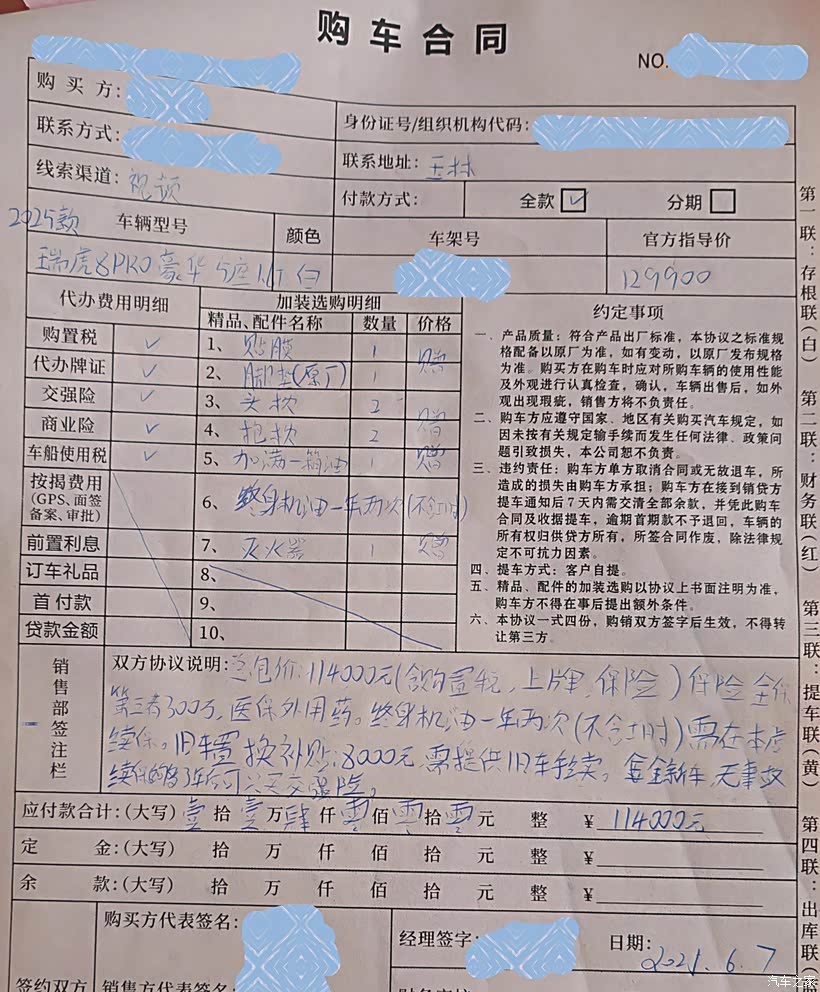 购车合同
NO.
购买方:
联系方式:
身份证号/组织机构代码:
线索渠道: 视频
联系地址: 玉林
付款方式: 全款 ☑ 分期 □
2025款 车辆型号 颜色 车架号 官方指导价
瑞虎8PRO豪华5座1.6T 白 129900
代办费用明细 加装选购明细 约定事项
精品、配件名称 数量 价格
购置税 ✓ 1、贴膜 1 赠
代办牌证 ✓ 2、脚垫(原厂) 1
交强险 ✓ 3、头枕 2
商业险 ✓ 4、抱枕 2 赠
车船使用税 ✓ 5、加满一箱油 1 赠
按揭费用
(GPS、面签
备案、审批)
6、终身机油一年两次(不含工时)
前置利息 7、灭火器 1 赠
订车礼品 8、
首付款 9、
贷款金额 10、
一、产品质量：符合产品出厂标准，本协议之标准规
格配备以原厂为准，如有变动，以原厂发布规格
为准。购买方在购车时应对所购车辆的使用性能
及外观进行认真检查，确认，车辆出售后，如外
观出现瑕疵，销售方将不负责任。
二、购车方应遵守国家、地区有关购买汽车规定，如
因未按有关规定输手续而发生任何法律、政策问
题引致损失，本公司恕不负责。
三、违约责任：购车方单方取消合同或无故退车，所
造成的损失由购车方承担；购车方在接到销贷方
提车通知后7天内需交清全部余款，并凭此购车
合同及收据提车，逾期首期款不予退回，车辆的
所有权归供贷方所有，所签合同作废，除法律规
定不可抗力因素。
四、提车方式：客户自提。
五、精品、配件的加装选购以协议上书面注明为准，
购车方不得在事后提出额外条件。
六、本协议一式四份，购销双方签字后生效，不得转
让第三方。
销售部签注栏
双方协议说明: 总包价:114000元(含购置税,上牌,保险)保险全保
第三者300万,医保外用药。终身机油一年两次(不含工时)需在本店
续保。旧车置换补贴:8000元,需提供旧车手续。 新车,无事故
应付款合计:(大写) 壹拾壹万肆仟零佰零拾零元 整 ¥ 114000元
定 金:(大写) 拾 万 仟 佰 拾 元 整 ¥
余 款:(大写) 拾 万 仟 佰 拾 元 整 ¥
签约双方
购买方代表签名:
经理签字:
日期: 6.7
销售方代表签名:
第一联：存根联(白)
第二联：财务联(红)
第三联：提车联(黄)
第四联：出库联
汽车之家